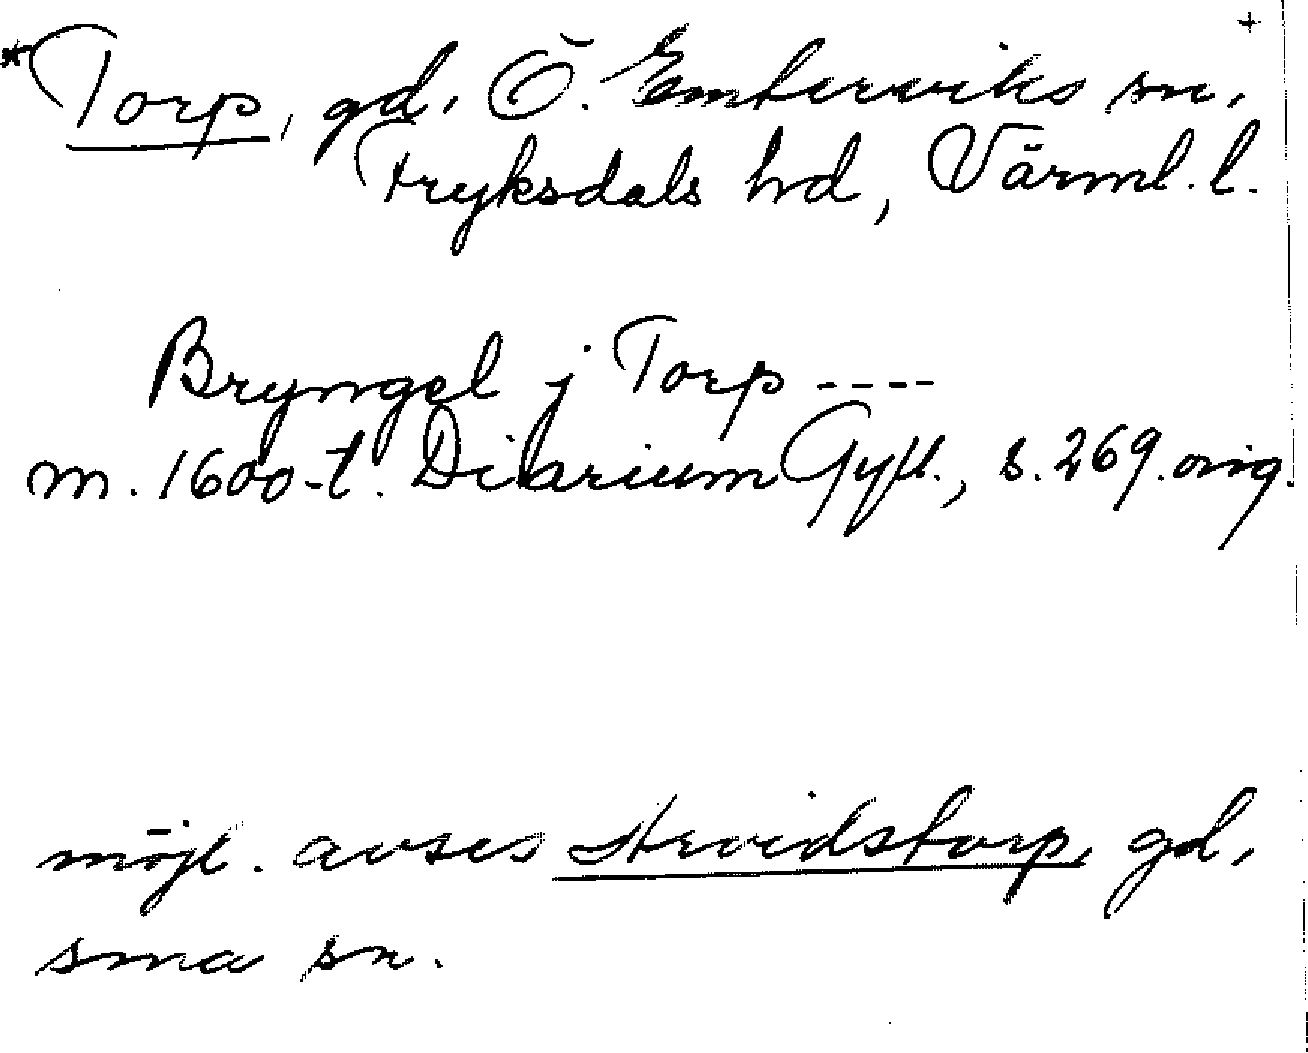 *Torp, gd, Ö. Emterviks sn, +
Fryksdals hd, Värml. l.
Bryngel j Torp ----
m. 1600-t. Diarium Gyll., s. 269. orig.
möjl. avses Arvidstorp, gd,
sma sn.